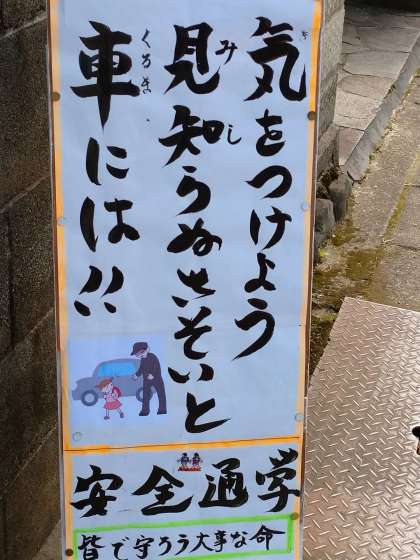 き
気をつけよう
み し
見知らぬさそいと
くるま
車には!!
安全通学
皆で守ろう大事な命